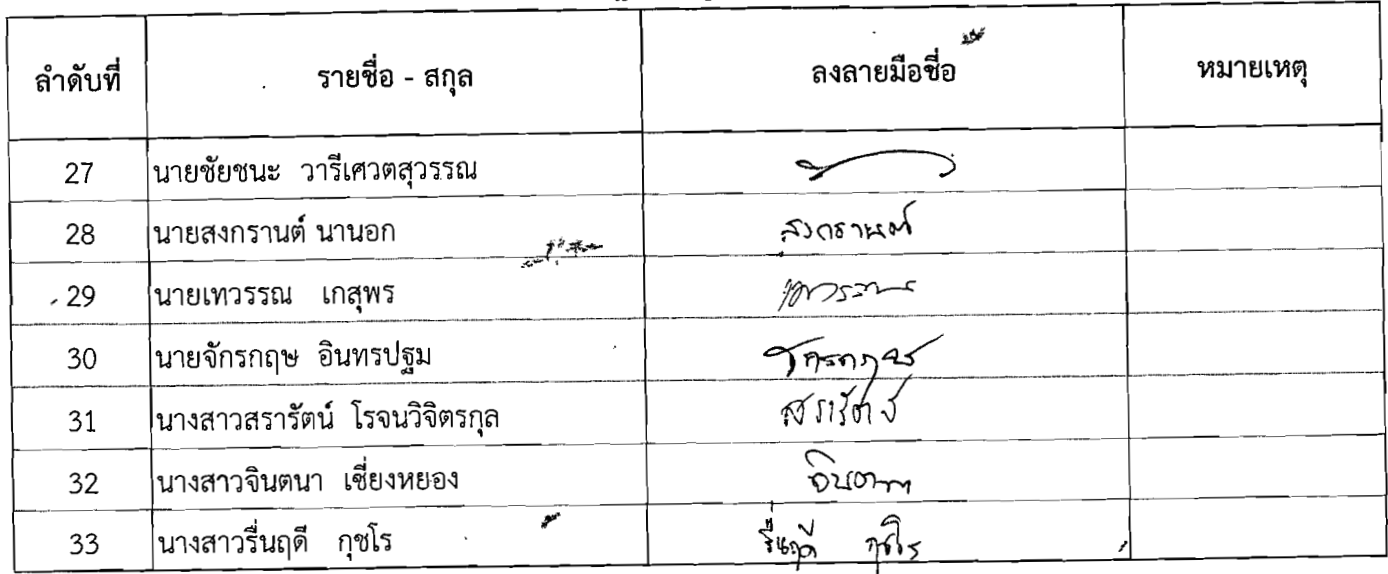 ลำดับที่ รายชื่อ - สกุล ลงลายมือชื่อ หมายเหตุ
27 นายชัยชนะ วารีเศวตสุวรรณ
28 นายสงกรานต์ นานอก สงกรานต์
29 นายเทวรรณ เกสุพร เทวรรณ
30 นายจักรกฤษ อินทรปฐม จักรกฤษ
31 นางสาวสรารัตน์ โรจนวิจิตรกุล สรารัตน์
32 นางสาวจินตนา เซี่ยงหยอง จินตนา
33 นางสาวรื่นฤดี กุชโร รื่นฤดี กุชโร